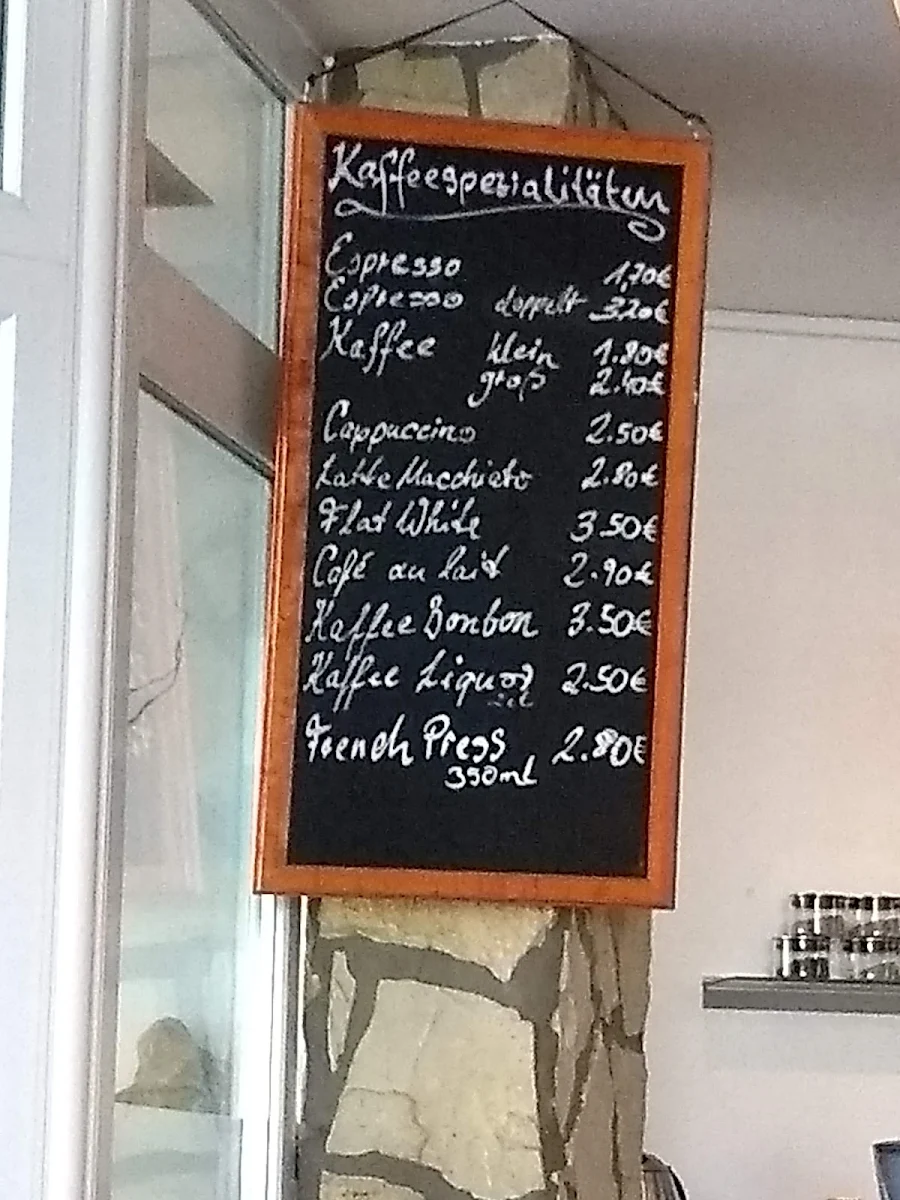 Kaffeespezialitäten
Espresso 1,70€
Espresso doppelt 3.20€
Kaffee klein 1.80€
groß 2.40€
Cappuccino 2.50€
Latte Macchiato 2.80€
Flat White 3.50€
Café au lait 2.90€
Kaffee Bonbon 3.50€
Kaffee Liquor 2.50€
2cl
French Press 2.80€
350ml